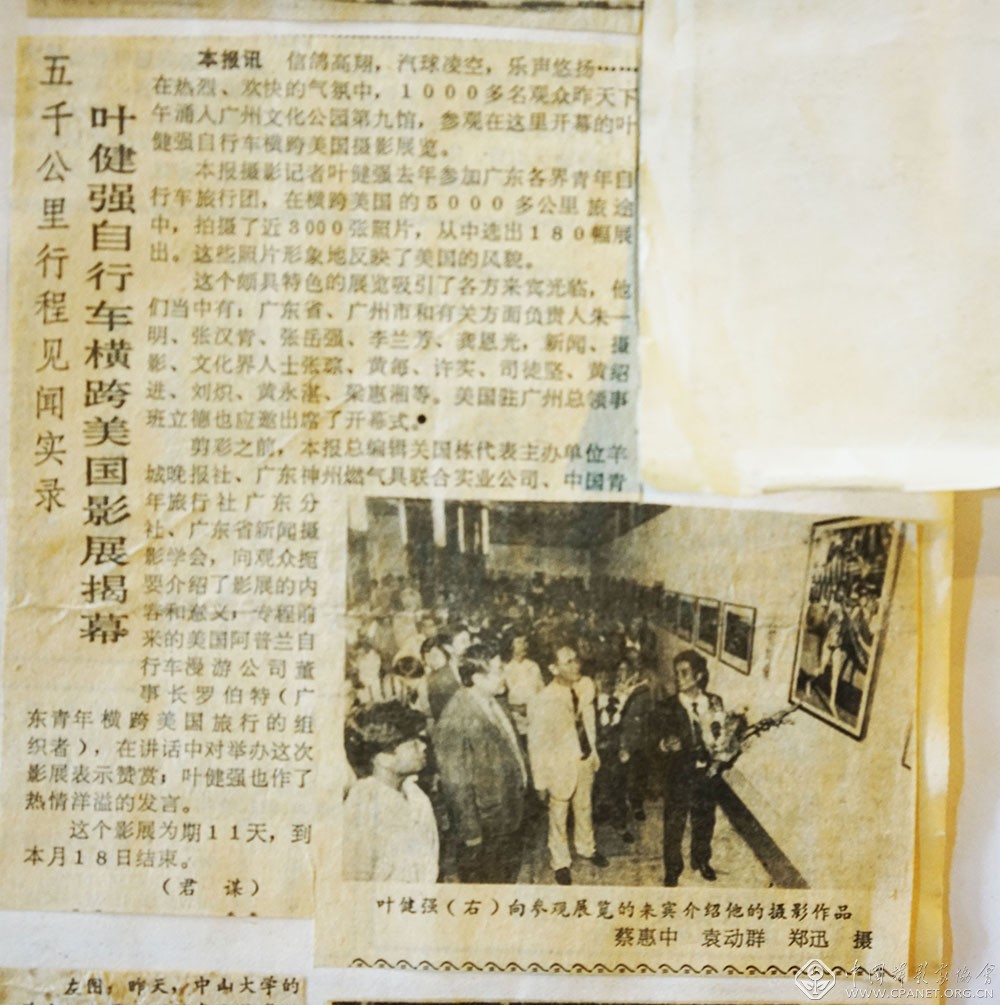 五千公里行程见闻实录
叶健强自行车横跨美国影展揭幕
本报讯 信鸽高翔，汽球凌空，乐声悠扬……
在热烈、欢快的气氛中，1000多名观众昨天下
午涌入广州文化公园第九馆，参观在这里开幕的叶
健强自行车横跨美国摄影展览。
本报摄影记者叶健强去年参加广东各界青年自
行车旅行团，在横跨美国的5000多公里旅途
中，拍摄了近3000张照片，从中选出180幅展
出。这些照片形象地反映了美国的风貌。
这个颇具特色的展览吸引了各方来宾光临，他
们当中有：广东省、广州市和有关方面负责人朱一
明、张汉青、张岳强、李兰芳、龚恩光，新闻、摄
影、文化界人士张琮、黄每、许实、司徒坚、黄绍
进、刘炽、黄永湛、梁惠湘等。美国驻广州总领事
班立德也应邀出席了开幕式。
剪彩之前，本报总编辑关国栋代表主办单位羊
城晚报社、广东神州燃气具联合实业公司、中国青
年旅行社广东分
社、广东省新闻摄
影学会，向观众扼
要介绍了影展的内
容和意义；专程前
来的美国阿普兰自
行车漫游公司董
事长罗伯特（广
东青年横跨美国旅行的组
织者），在讲话中对举办这次
影展表示赞赏；叶健强也作了
热情洋溢的发言。
这个影展为期11天，到
本月18日结束。
（君 谋）
叶健强（右）向参观展览的来宾介绍他的摄影作品
蔡惠中 袁动群 郑迅 摄
左图：昨天，中山大学的
中国摄影家协会
WWW.CPANET.ORG.CN